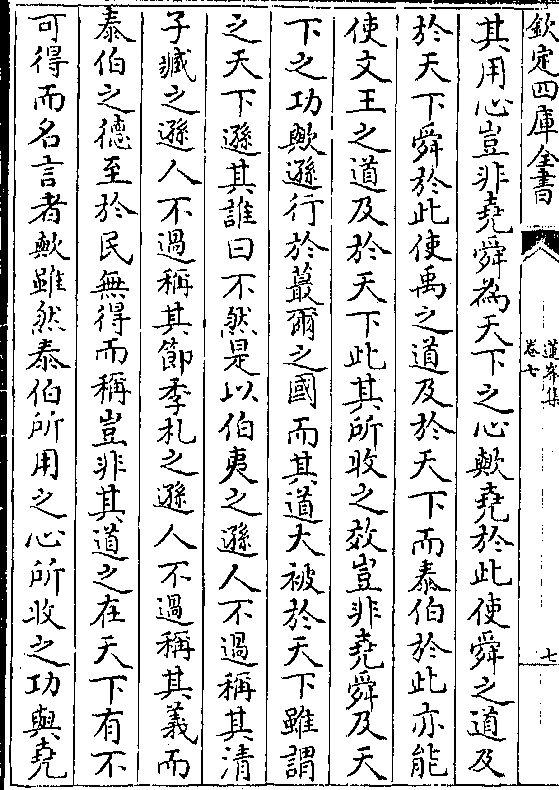 欽定四庫全書
道鄉集
卷七
七
其用心豈非堯舜為天下之心歟堯於此使舜之道及
於天下舜於此使禹之道及於天下而泰伯於此亦能
使文王之道及於天下此其所收之效豈非堯舜及天
下之功歟遜行於蕞爾之國而其道大被於天下雖謂
之天下遜其誰曰不然是以伯夷之遜人不過稱其清
子臧之遜人不過稱其節季札之遜人不過稱其義而
泰伯之德至於民無得而稱豈非其道之在天下有不
可得而名言者歟雖然泰伯所用之心所收之功與堯